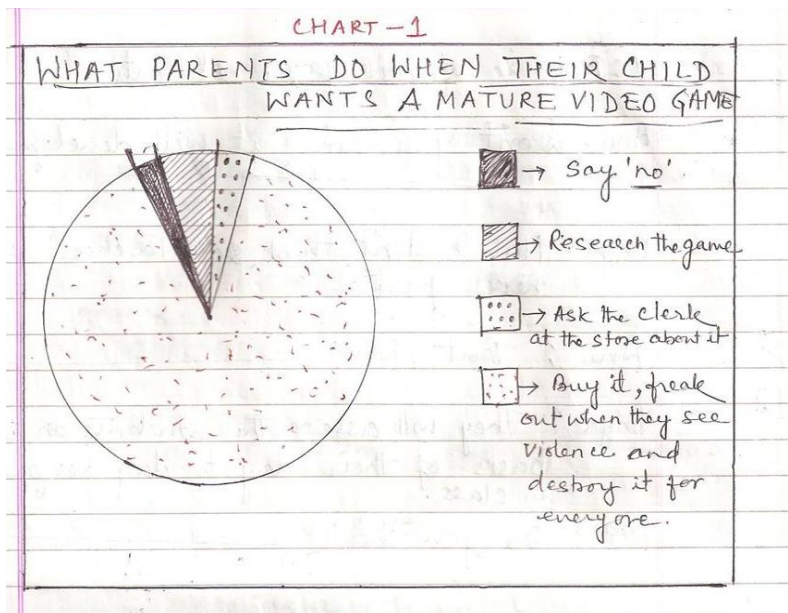 CHART-1
WHAT PARENTS DO WHEN THEIR CHILD
WANTS A MATURE VIDEO GAME
→ Say 'no'
→ Research the game
→ Ask the clerk
at the store about it
→ Buy it, freak
out when they see
violence and
destroy it for
everyone.